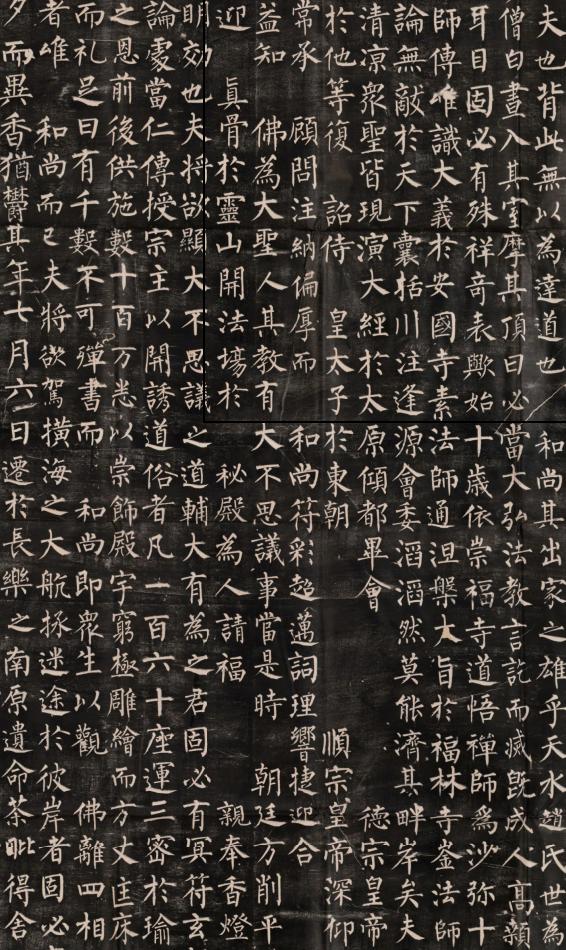 夫也背此無以為達道也　和尚其出家之雄乎天水趙氏世為
僧白晝入其室摩其頂曰必當大弘法教言訖而滅既成人高顙
耳目固必有殊祥奇表歟始十歲依崇福寺道悟禪師為沙弥十
師傳唯識大義於安國寺素法師通涅槃大旨於福林寺崟法師
論無敵於天下囊括川注逢源會委滔滔然莫能濟其畔岸矣夫
清涼眾聖皆現演大經於太原傾都畢會　德宗皇帝
於他等復　詔侍　皇太子於東朝　順宗皇帝深仰
常承　顧問注納偏厚而　和尚符彩超邁詞理響捷迎合
益知　佛為大聖人其教有大不思議事當是時　朝廷方削平
迎　真骨於靈山開法場於　秘殿為人請福　親奉香燈
明効也夫將欲顯大不思議之道輔大有為之君固必有冥符玄
論處當仁傳授宗主以開誘道俗者凡一百六十座運三密於瑜
之恩前後供施數十百万悉以崇飾殿宇窮極雕繪而方丈匡床
而礼足日有千數不可殫書而　和尚即眾生以觀　佛離四相
者唯　和尚而已夫將欲駕橫海之大航拯迷途於彼岸者固必
夕而異香猶鬱其年七月六日遷於長樂之南原遺命荼毗得舍